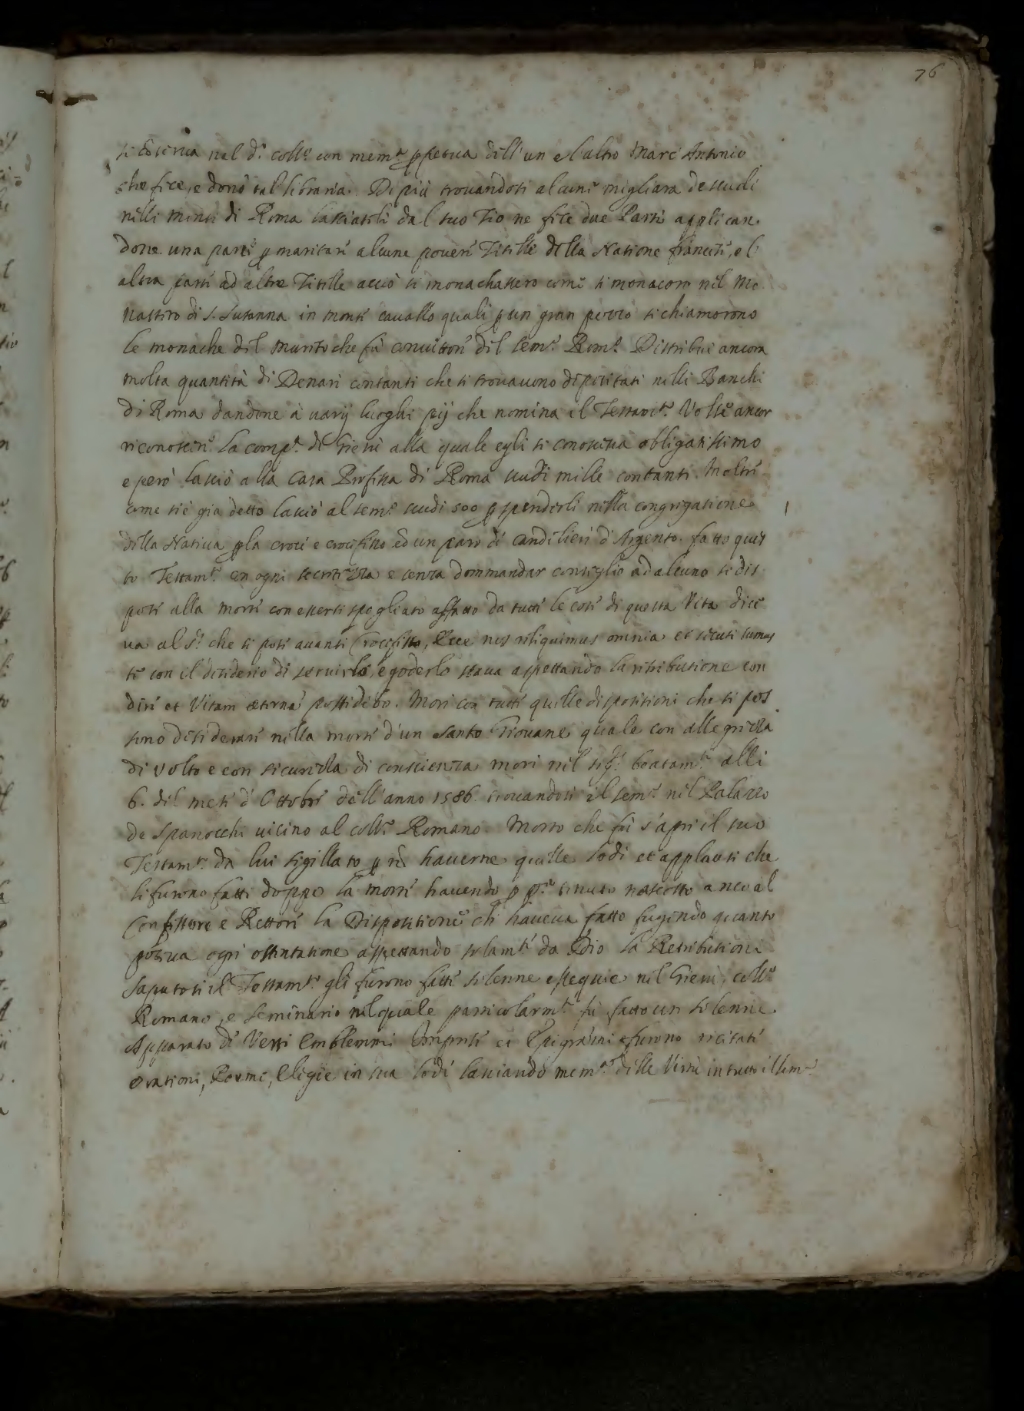 76
si osserua nel d.º coll.º con mem.ª ꝑpetua dell'un e l'altro Marc Antonio
che fece, e donò tal libraria. Di più trouandosi alcune migliara de scudi
nelli monti di Roma lasciatoli dal suo Tio ne fece due Parti applican
done una parte ꝑ maritare alcune pouere Zitelle della Natione francese, e l'
altra parte ad altre Zitelle acciò si monachassero come si monacoro nel Mo
nastero di S. Susanna in monte cauallo quali ꝑ un gran pezzo si chiamorono
le monache del Mureto che fù conuittore del Sem.º Rom.º Distribuì ancora
molta quantità di Denari contanti che si trouauono depositati nelli Banchi
di Roma dandone à varij luoghi pij che nomina il Testam.º Volse ancor
riconoscere la comp.ª di Giesù alla quale egli si conosceua obligatissimo
e però lasciò alla Casa Professa di Roma scudi mille contanti. Inoltre
come si è già detto lasciò al sem.º scudi 500 ꝑ spenderli nella congregatione
della Natiua ꝑ la croce e crocifisso, ed un paro di candelieri d'Argento. fatto ques
to Testam.º en ogni secretezza e senza dommandar consiglio ad alcuno si dis
pose alla morte con esserti spogliato affatto da tutte le cose di questa Vita dice
ua al S.re che si pose auanti Crocifisso, Ecce nos reliquimus omnia et secuti sumus
te con il desiderio di seruirlo, e goderlo staua aspettando la retributione con
dire et Vitam æternã possidebo. Morì con tutte quelle dispositioni che si pos
sono desiderare nella morte d'un Santo Giouane quale con allegrezza
di volto e con sicurezza di conscienza morì nel sig.re beatam.te alli
6. del mese d'Ottobre dell'anno 1586 trouandosi il Sem.º nel Palazzo
de Spanocchi uicino al coll.º Romano. Morto che fù s'aprì il suo
Testam.º da lui sigillato ꝑ nõ hauerne quelle lodi et applausi che
li furono fatti doppo la morte hauendo ꝑ q.to tenuto nascosto anco al
Confessore e Rettore la Dispositione ch'haueua fatto fugendo quanto
poteua ogni ostentatione aspettando solam.te da Dio la Retributione.
Saputosi il Testam.º gli furono fatte solenne essequie nel Giesù, coll.º
Romano, e Seminario nel quale particolarm.te fù fatto un solenne
Apparato di Versi Emblemmi Imprese et Epigrãmi e furono recitati
Orationi, Poeme, Elegie in sua lode lasciando mem.ª delle Virtù in tutto il sem.º